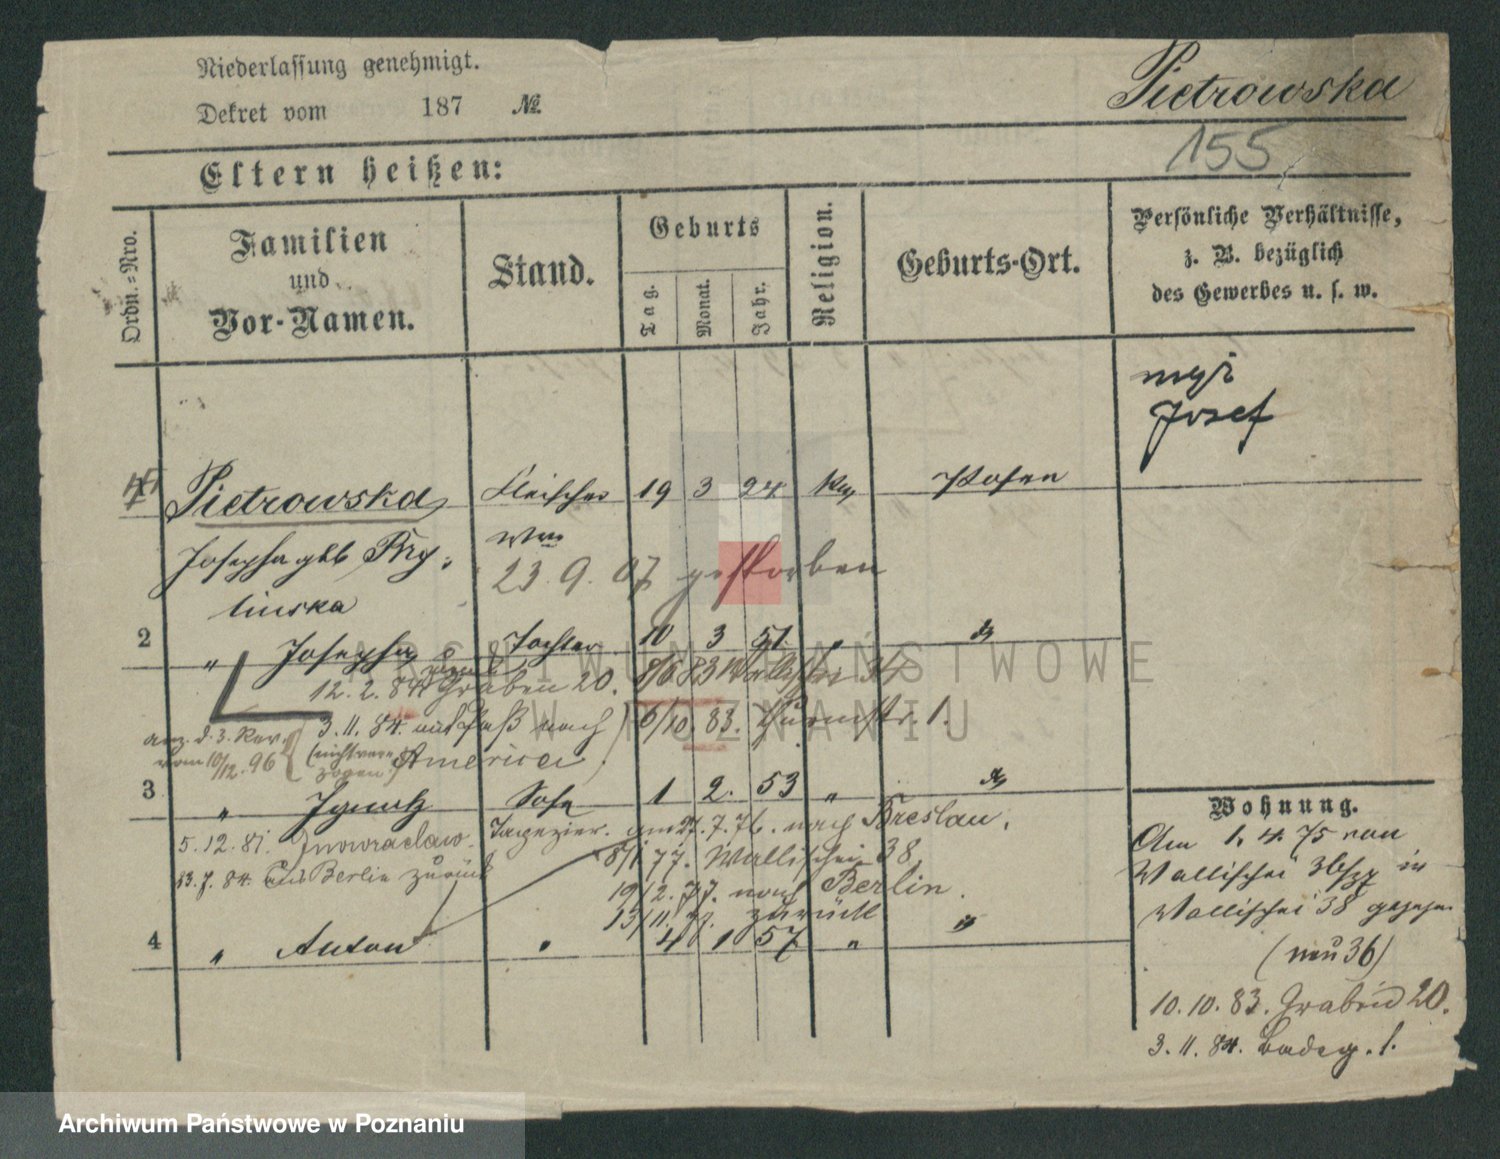 Niederlassung genehmigt.
Dekret vom 187 №.
Pietrowska
155
Eltern heißen:
Ordn.-Nro.
Familien
und
Vor-Namen.
Stand.
Geburts
Tag.
Monat.
Jahr.
Religion.
Geburts-Ort.
Persönliche Verhältnisse,
z. B. bezüglich
des Gewerbes u. s. w.
Josef
Pietrowska Fleischer 19 3 24 Posen
Josepha geb Bry-
linska
23. 9. 07 gestorben
2 " Josepha Tochter 10 3 51. "
12. 2. 84 Graben 20. 8/6 83 Wallischei
3. 11. 84. auf Paß nach 6/10. 83. Thurmstr. 1.
America
vom 10/12. 96
3 " Ignatz Sohn 1 2. 53 "
Tapezier. am 27. 7. 76. nach Breslau.
5. 12. 81. Inowraclaw.
8/1 77. Wallischei 38
13. 7. 84. aus Berlin zurück
19/2. 77. nach Berlin.
13/11. 77. zurück
4 " Anton " 4 1 57 " "
Wohnung.
Am 1. 4. 75 von
Wallischei in
Wallischei 38 gezogen
(neu 36)
10. 10. 83. Graben 20.
3. 11. 84. Badeg. 1.
ARCHIWUM PAŃSTWOWE
W POZNANIU
Archiwum Państwowe w Poznaniu